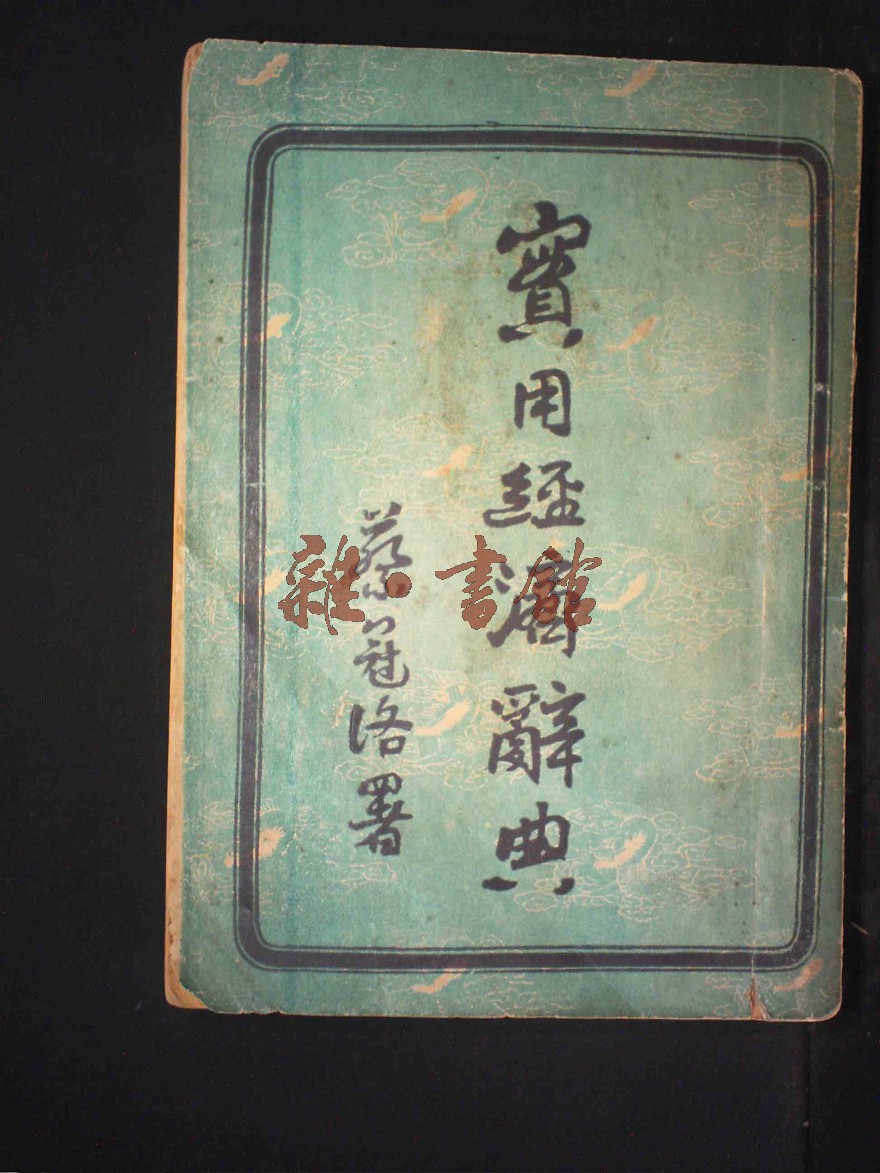 實用經濟辭典
蔡冠洛署
雜·書館